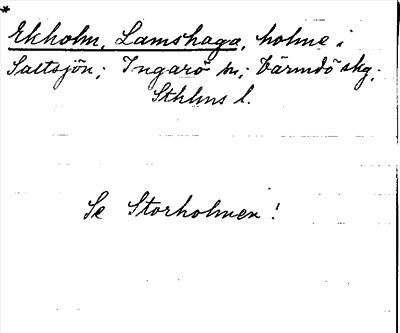 *
Ekholm, Lamshaga, holme i
Saltsjön; Ingarö sn; Värmdö skg;
Sthlms l.
Se Storholmen!